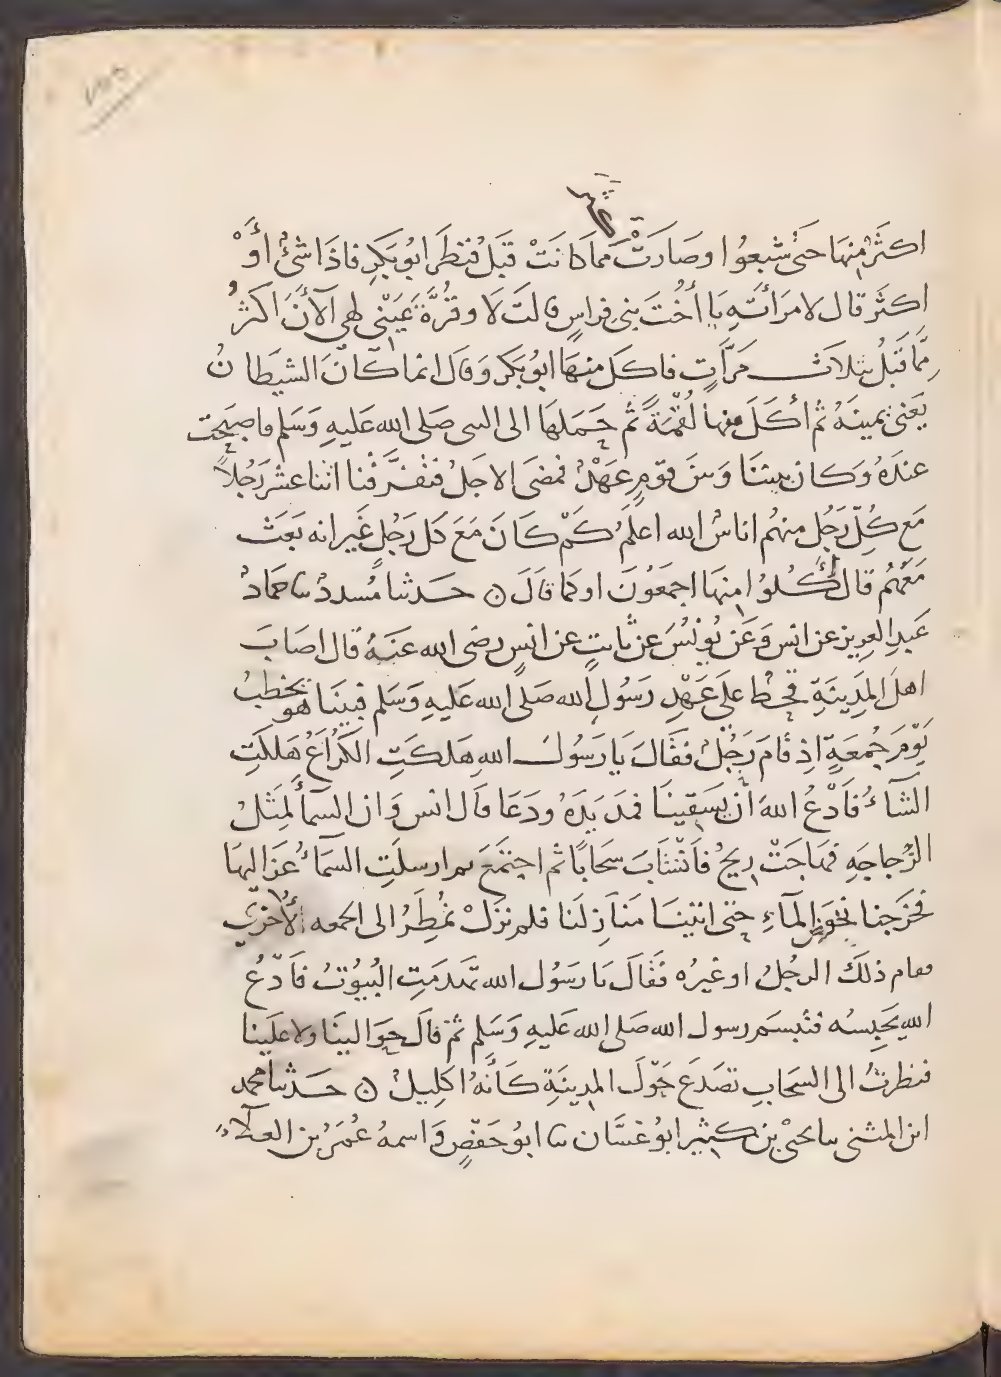 اكثَرُ مِنهَا حَتىٰ شبعُوا وصَارَتْ مما كانَتْ قَبلُ فنظَرَ ابُو بَكرٍ فاذَا شئٌ أوْ
اكثَر قال لامرَأتَهِ يَا أختَ بَنى فِراسٍ قالَت لَا وقُرَّةِ عَينى لهى الآنَ اكثرُ
مِمَّا قبلُ بثلاث مَرَّاتٍ فاكَل منهَا ابُو بَكر وَقال انما كانَ الشيطانُ
يَعنى يمينَهُ ثُم أكَلَ منها لُقمَةً ثُم حَمَلهَا الى النبى صَلى الله عَليهِ وَسَلم فاصبَحت
عندَهُ وَكان بيننَا وَبينَ قومٍ عَهْدٌ فمضَى الاجَلُ فتفرَّقنا اثنا عشر رَجُلاً
مَع كُلّ رَجُل منهُم اناسٌ الله اعلَمُ كَمْ كَانَ مَعَ كل رَجُلٍ غَير انه بَعَث
مَعَهُم قالَ أكَلُوا منهَا اجمَعُونَ او كما قالَ ۞ حَدثنا مُسددٌ نا حمادٌ
عَبدِ العزِيز عن انس وَعَن يُونُسَ عن ثابتٍ عن انسٍ رضى الله عَنهُ قال اصَابَ
اهلَ المدِينَةِ قحطٌ على عَهْدِ رَسُولِ الله صَلى الله عَليهِ وَسَلم فبينَا هو يخطبُ
يَوْمَ جُمعَةٍ اذ قامَ رَجُلٌ فقَالَ يَا رَسُولَ اللهِ هَلكَتِ الكُرَاعُ هَلكَتِ
الشآءُ فَادْعُ اللهَ أنْ يَسقينَا فمَد يَدَهُ ودَعَا قال انس وَان السمآ لمِثلُ
الزُّجاجَةِ فهَاجَتْ رِيحٌ فأنشأت سَحابًا ثم اجتمَعَ ثم ارسلَتِ السمآءُ عَزاليهَا
فخرَجنا نخوضُ المآءِ حتى اتينا مَنازِلنَا فلم نزَلْ نمُطرُ الى الجمعه الأخرَى
فقام ذلكَ الرجُلُ او غيرُه فقَالَ يا رَسُول الله تهَدمَتِ البُيُوتُ فَادْعُ
الله يَحبِسه فتبسَم رسول الله صَلى الله عَليهِ وَسَلم ثم قالَ حوَالينَا ولا علَينا
فنظرتُ الى السَحابِ تصَدعَ حَوْلَ المدِينَةِ كَأنهُ اكلِيلٌ ۞ حَدثنا محمد
ابن المثنى نا يحيى بن كثِير ابُو غسَّان نا ابُو حَفصٍ وَاسمهُ عُمَرُ بن العَلآءِ